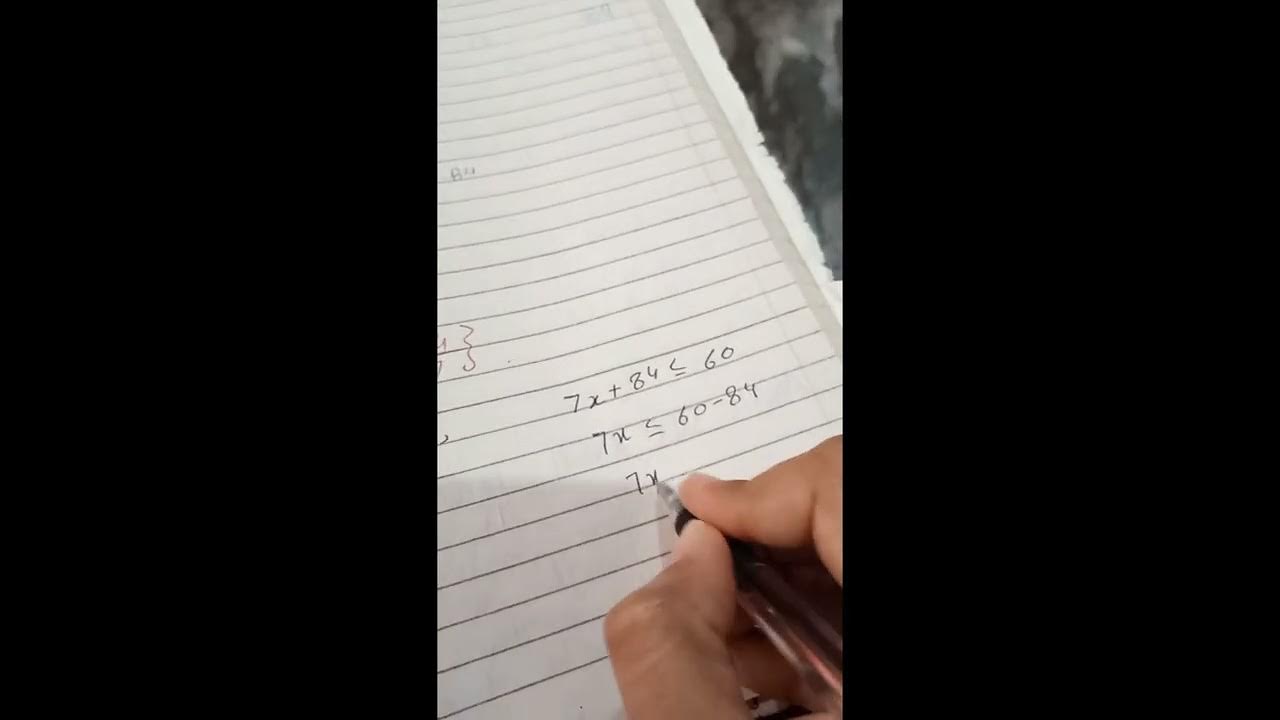 84
7x + 84 ≤ 60
7x ≤ 60 - 84
7x